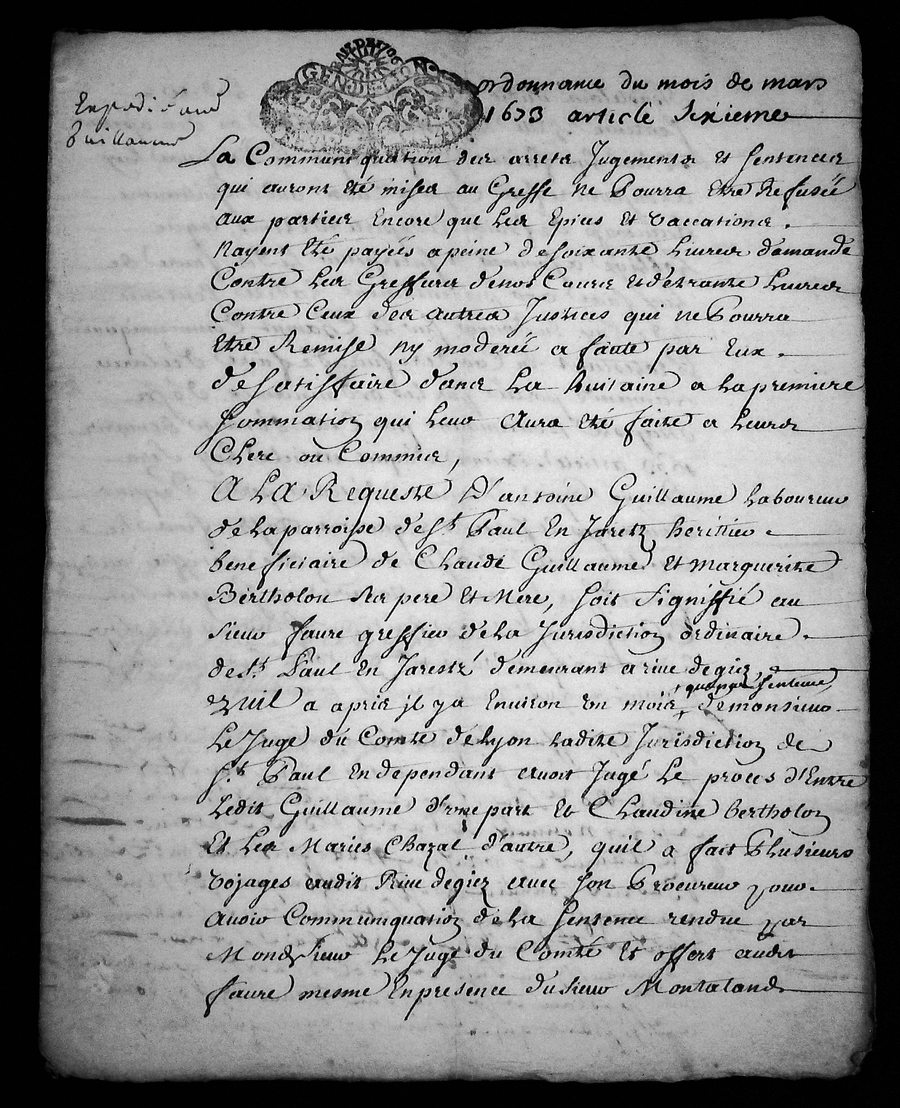 GEN DE LION
ordonnance du mois de mars
1673 article Sixieme
Guillaume
La Communiquation des arrets Jugements et Sentences
qui auront eté mises au Greffe ne Pourra Etre Refusée
aux parties Encore que Les Epices et Vaccations.
Nayent Eté payées a peine de soixante Livres damande
Contre Les Greffiers de nos Cours et de trante Livres
Contre Ceux des autres Justices qui ne Pourra
Etre Remise ny moderée a faute par Eux.
de satisffaire dans La huitaine a la premiere
Sommation qui Leur Aura eté faite a Leurs
Clerc ou Commis,
A LA Requeste D'antoine Guillaume Laboureur
de la parroisse de St. Paul En Jaretz heritier
beneficiaire de Claude Guillaume et Marguerite
Bertholon ses pere et Mere, soit Signiffié au
sieur faure greffier de la Jurisdiction ordinaire.
de St. Paul En Jarestz demeurant a rive de giez
quil a apris il ya Environ un mois, que par sentence de monsieur
Le Juge du Comté de Lyon ladite Jurisdiction de
St. Paul En dependant avoit Jugé Le proces d'Entre
Ledit Guillaume d'une part et Claudine bertholon
Et Les Maries Chazal d'autre, quil a fait Plusieurs
Vojages audit Rive de giez avec son Procureur pour.
Avoir Communiquation de la Sentence rendue par
Mondsieur Le Juge du Comté et offert audit
faure mesme En presence du sieur Montaland